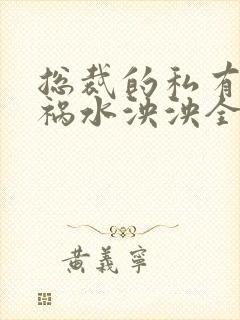 总裁的私有
祸水泱泱全
黄義寧